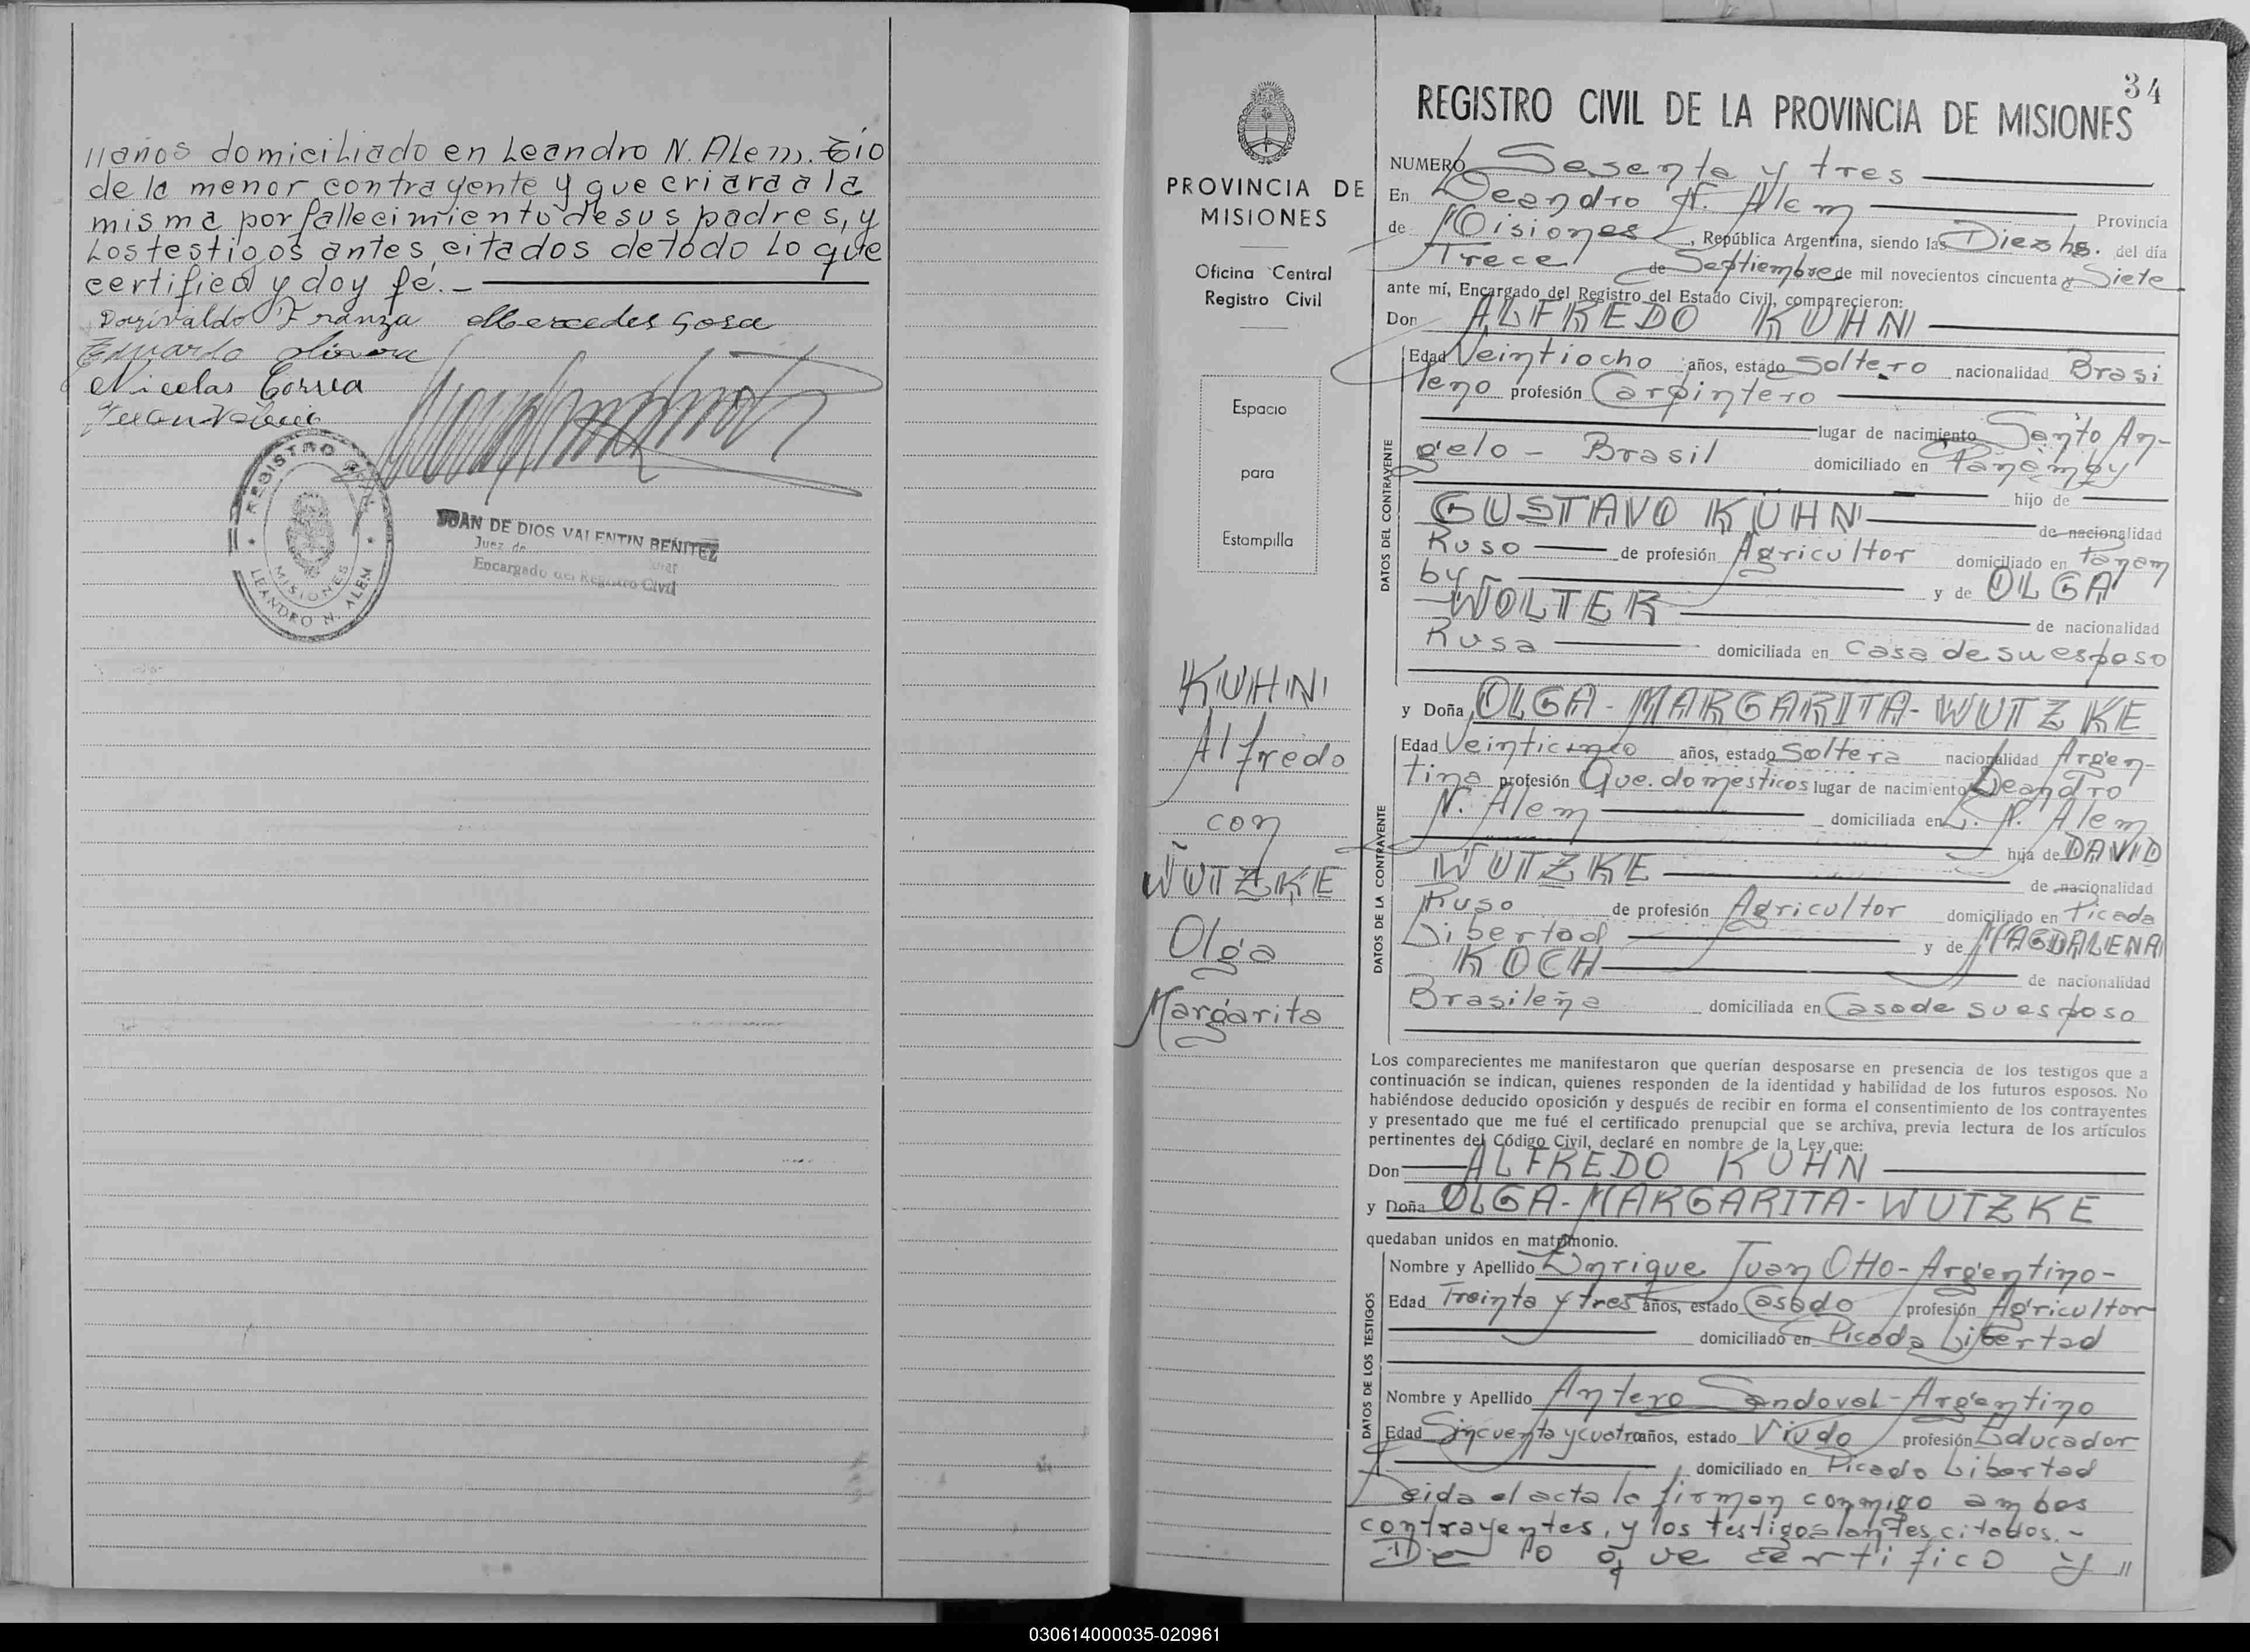 //años domiciliado en Leandro N. Alem. Tío
de la menor contrayente y que criara a la
misma por fallecimiento de sus padres, y
Los testigos antes citados de todo Lo que
certifico y doy fé.-
Dorivaldo Franza Mercedes Sosa
Eduardo
Nicolas Correa
Juan
REGISTRO CIVIL
MISIONES
LEANDRO N. ALEM
JUAN DE DIOS VALENTIN BENITEZ
Juez de
Encargado del Registro Civil
34
PROVINCIA DE
MISIONES
Oficina Central
Registro Civil
Espacio
para
Estampilla
KUHN
Alfredo
con
WUTZKE
Olga
Margarita
REGISTRO CIVIL DE LA PROVINCIA DE MISIONES
NUMERO Sesenta y tres
En Leandro N. Alem Provincia
de Misiones, República Argentina, siendo las Diez hs. del día
Trece de Septiembre de mil novecientos cincuenta y Siete
ante mí, Encargado del Registro del Estado Civil, comparecieron:
Don ALFREDO KUHN
DATOS DEL CONTRAYENTE
Edad Veintiocho años, estado Soltero nacionalidad Brasi
leno profesión Carpintero
lugar de nacimiento Santo An-
gelo - Brasil domiciliado en Panamby
hijo de
GUSTAVO KUHN de nacionalidad
Ruso de profesión Agricultor domiciliado en Panam
by y de OLGA
WOLTER de nacionalidad
Rusa domiciliada en Casa de su esposo
y Doña OLGA-MARGARITA-WUTZKE
DATOS DE LA CONTRAYENTE
Edad Veinticinco años, estado Soltera nacionalidad Argen-
tina profesión Que. domesticos lugar de nacimiento Leandro
N. Alem domiciliada en L. N. Alem
hija de DAVID
WUTZKE de nacionalidad
Ruso de profesión Agricultor domiciliado en Picada
Libertad y de MAGDALENA
KOCH de nacionalidad
Brasileña domiciliada en Casa de su esposo
Los comparecientes me manifestaron que querían desposarse en presencia de los testigos que a
continuación se indican, quienes responden de la identidad y habilidad de los futuros esposos. No
habiéndose deducido oposición y después de recibir en forma el consentimiento de los contrayentes
y presentado que me fué el certificado prenupcial que se archiva, previa lectura de los artículos
pertinentes del Código Civil, declaré en nombre de la Ley que:
Don ALFREDO KUHN
y Doña OLGA-MARGARITA-WUTZKE
quedaban unidos en matrimonio.
DATOS DE LOS TESTIGOS
Nombre y Apellido Enrique Juan Otto-Argentino-
Edad Treinta y tres años, estado Casado profesión Agricultor
domiciliado en Picada Libertad
Nombre y Apellido Antero Sandoval-Argentino
Edad Sincuenta y cuatro años, estado Viudo profesión Educador
domiciliado en Picada Libertad
Leida el acta la firman conmigo ambos
contrayentes, y los testigos antes citados.-
De lo que certifico y //
030614000035-020961